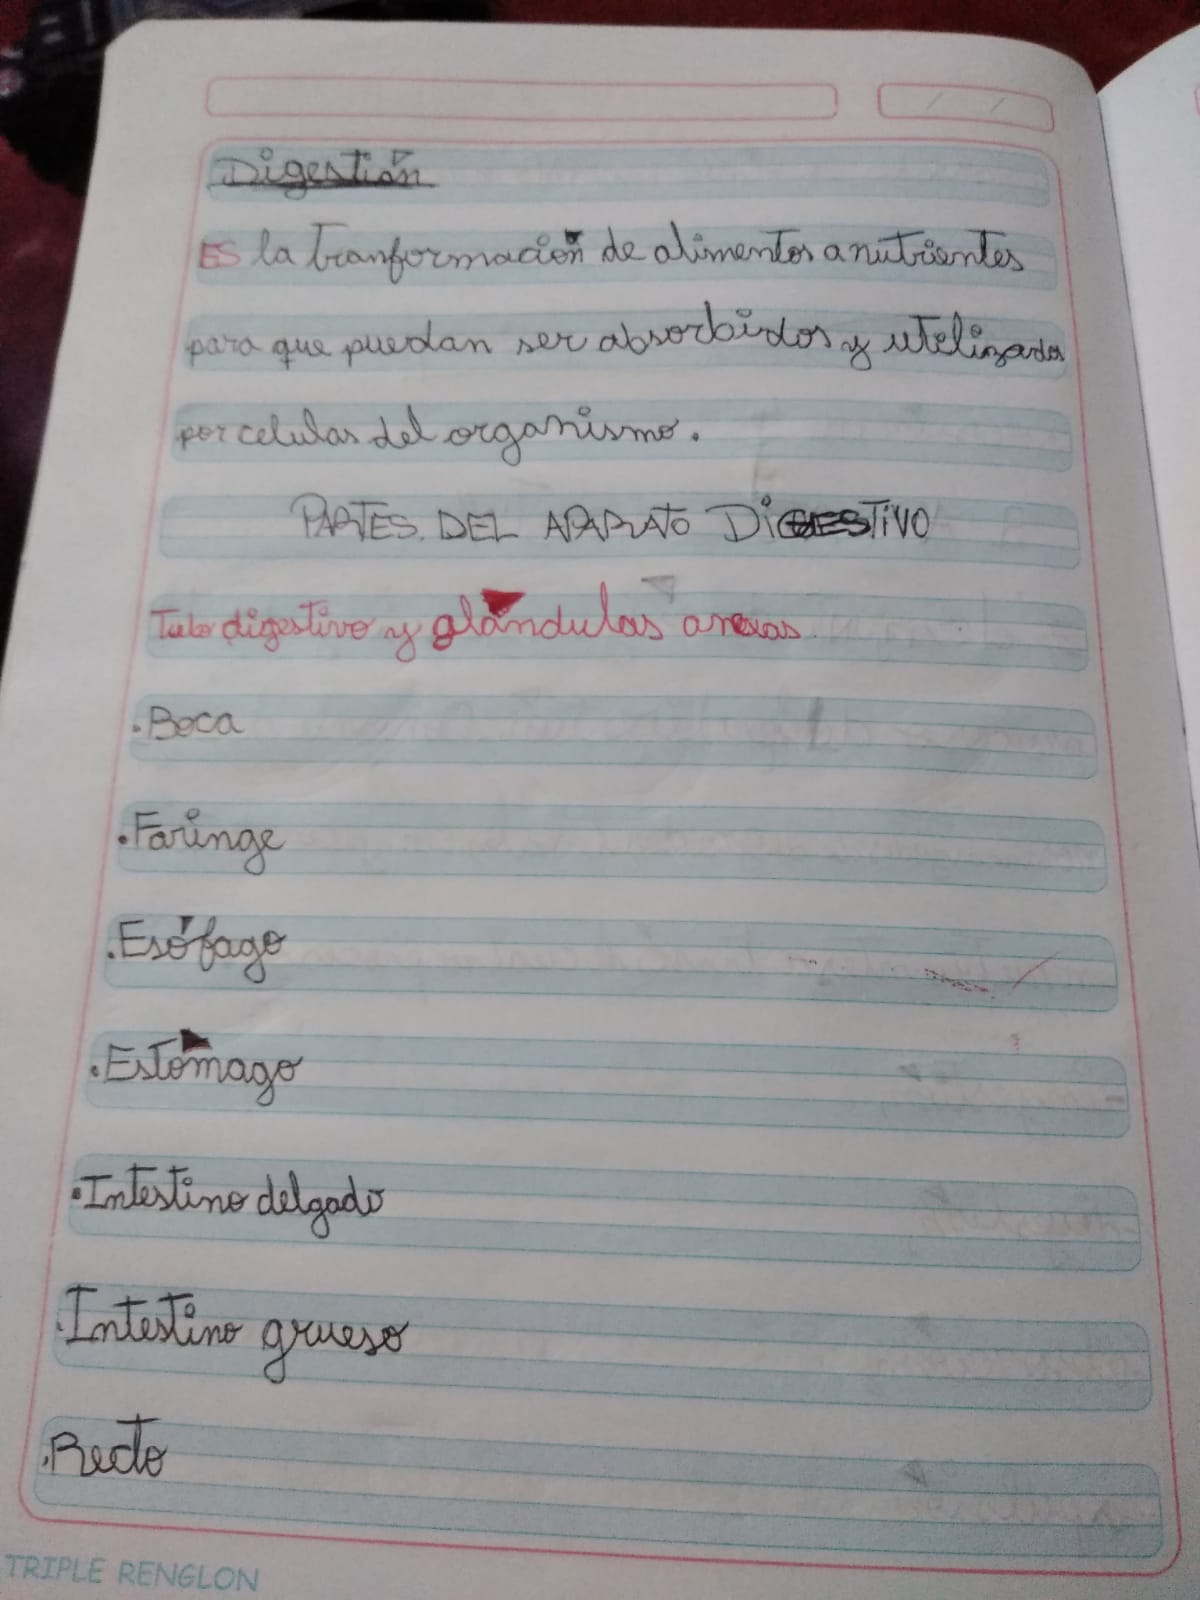 Digestión
ES la tranformación de alimentos a nutrientes
para que puedan ser absorbidos y utelizados
por celulas del organismo.
PARTES. DEL APARATO DiGESTiVO
Tubo digestivo y glándulas anexas.
.Boca
.Faringe
.Esófago
.Estómago
.Intestino delgado
.Intestino grueso
.Recto
TRIPLE RENGLON